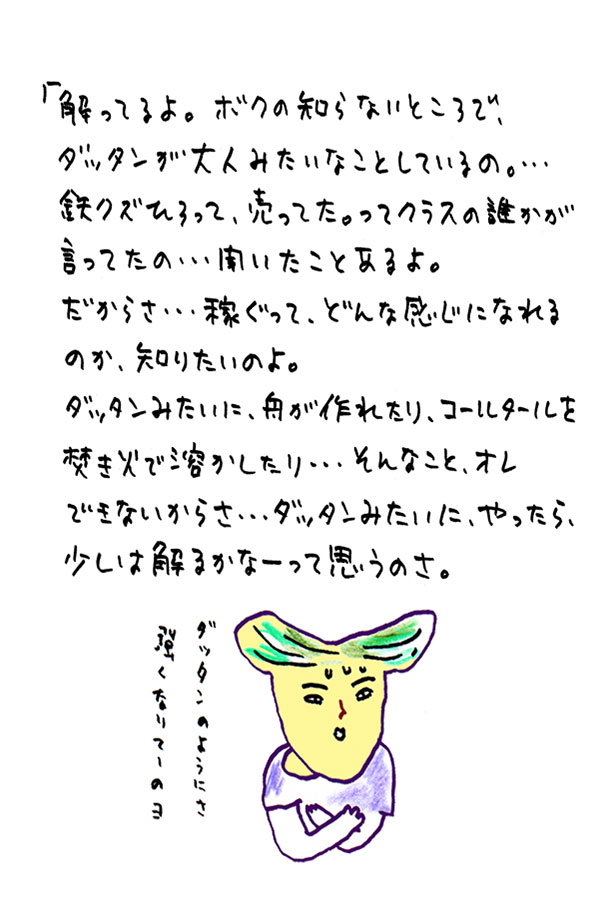 「解ってるよ。ボクの知らないところで、
ダッタンが大人みたいなことしているの。…
鉄クズひろって、売ってた。ってクラスの誰かが
言ってたの…聞いたことあるよ。
だからさ…稼ぐって、どんな感じになれる
のか、知りたいのよ。
ダッタンみたいに、舟が作れたり、コールタールを
焚き火で溶かしたり…そんなこと、オレ
できないからさ…ダッタンみたいに、やったら、
少しは解るかなーって思うのさ。
ダッタンのようにさ
強くなりてーのヨ